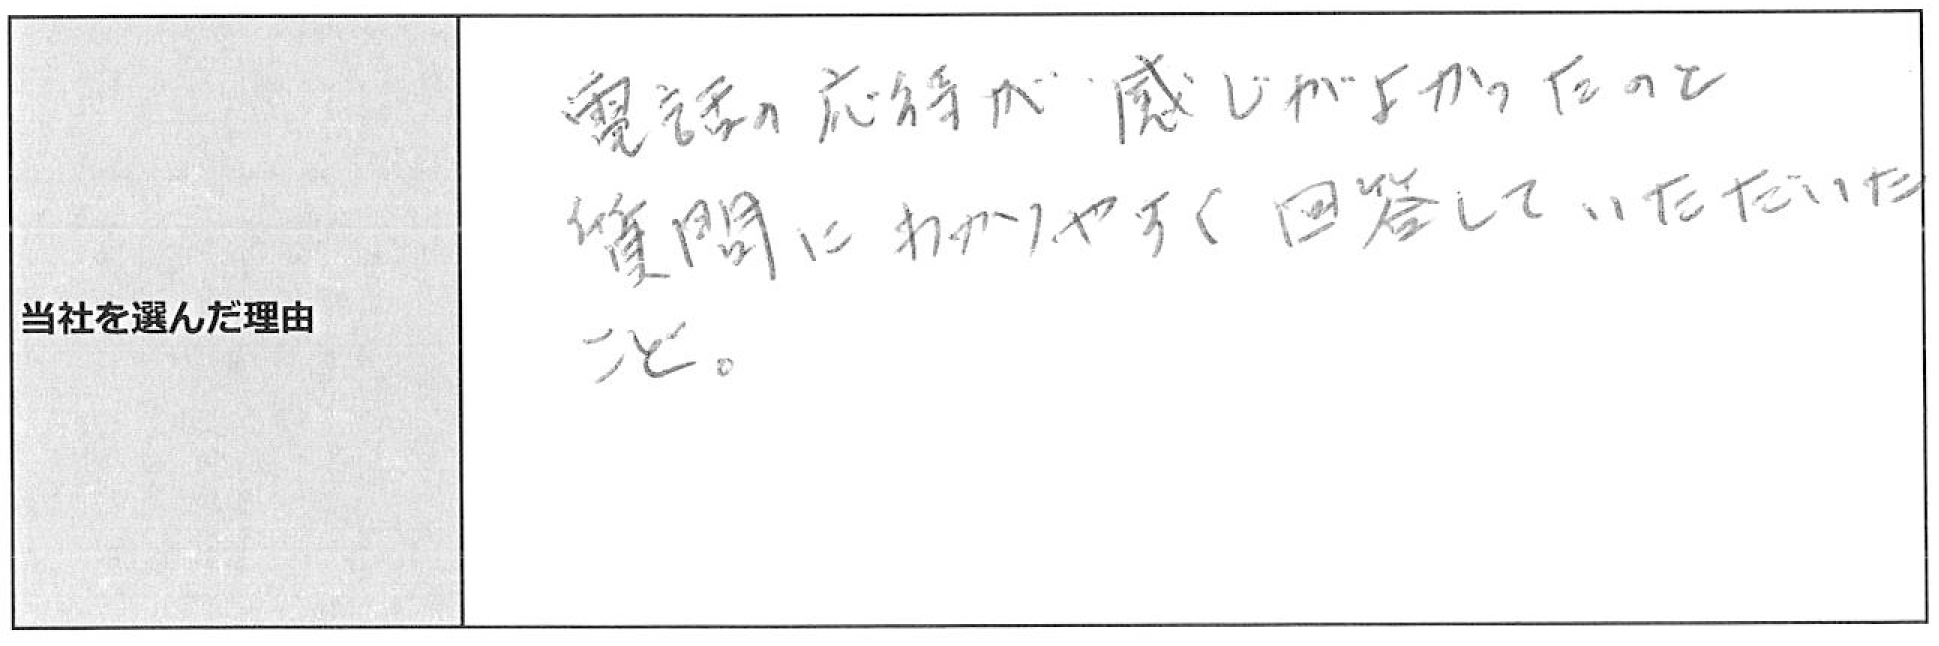 当社を選んだ理由
電話の応待が感じがよかったのと
質問にわかりやすく回答していただいた
こと。